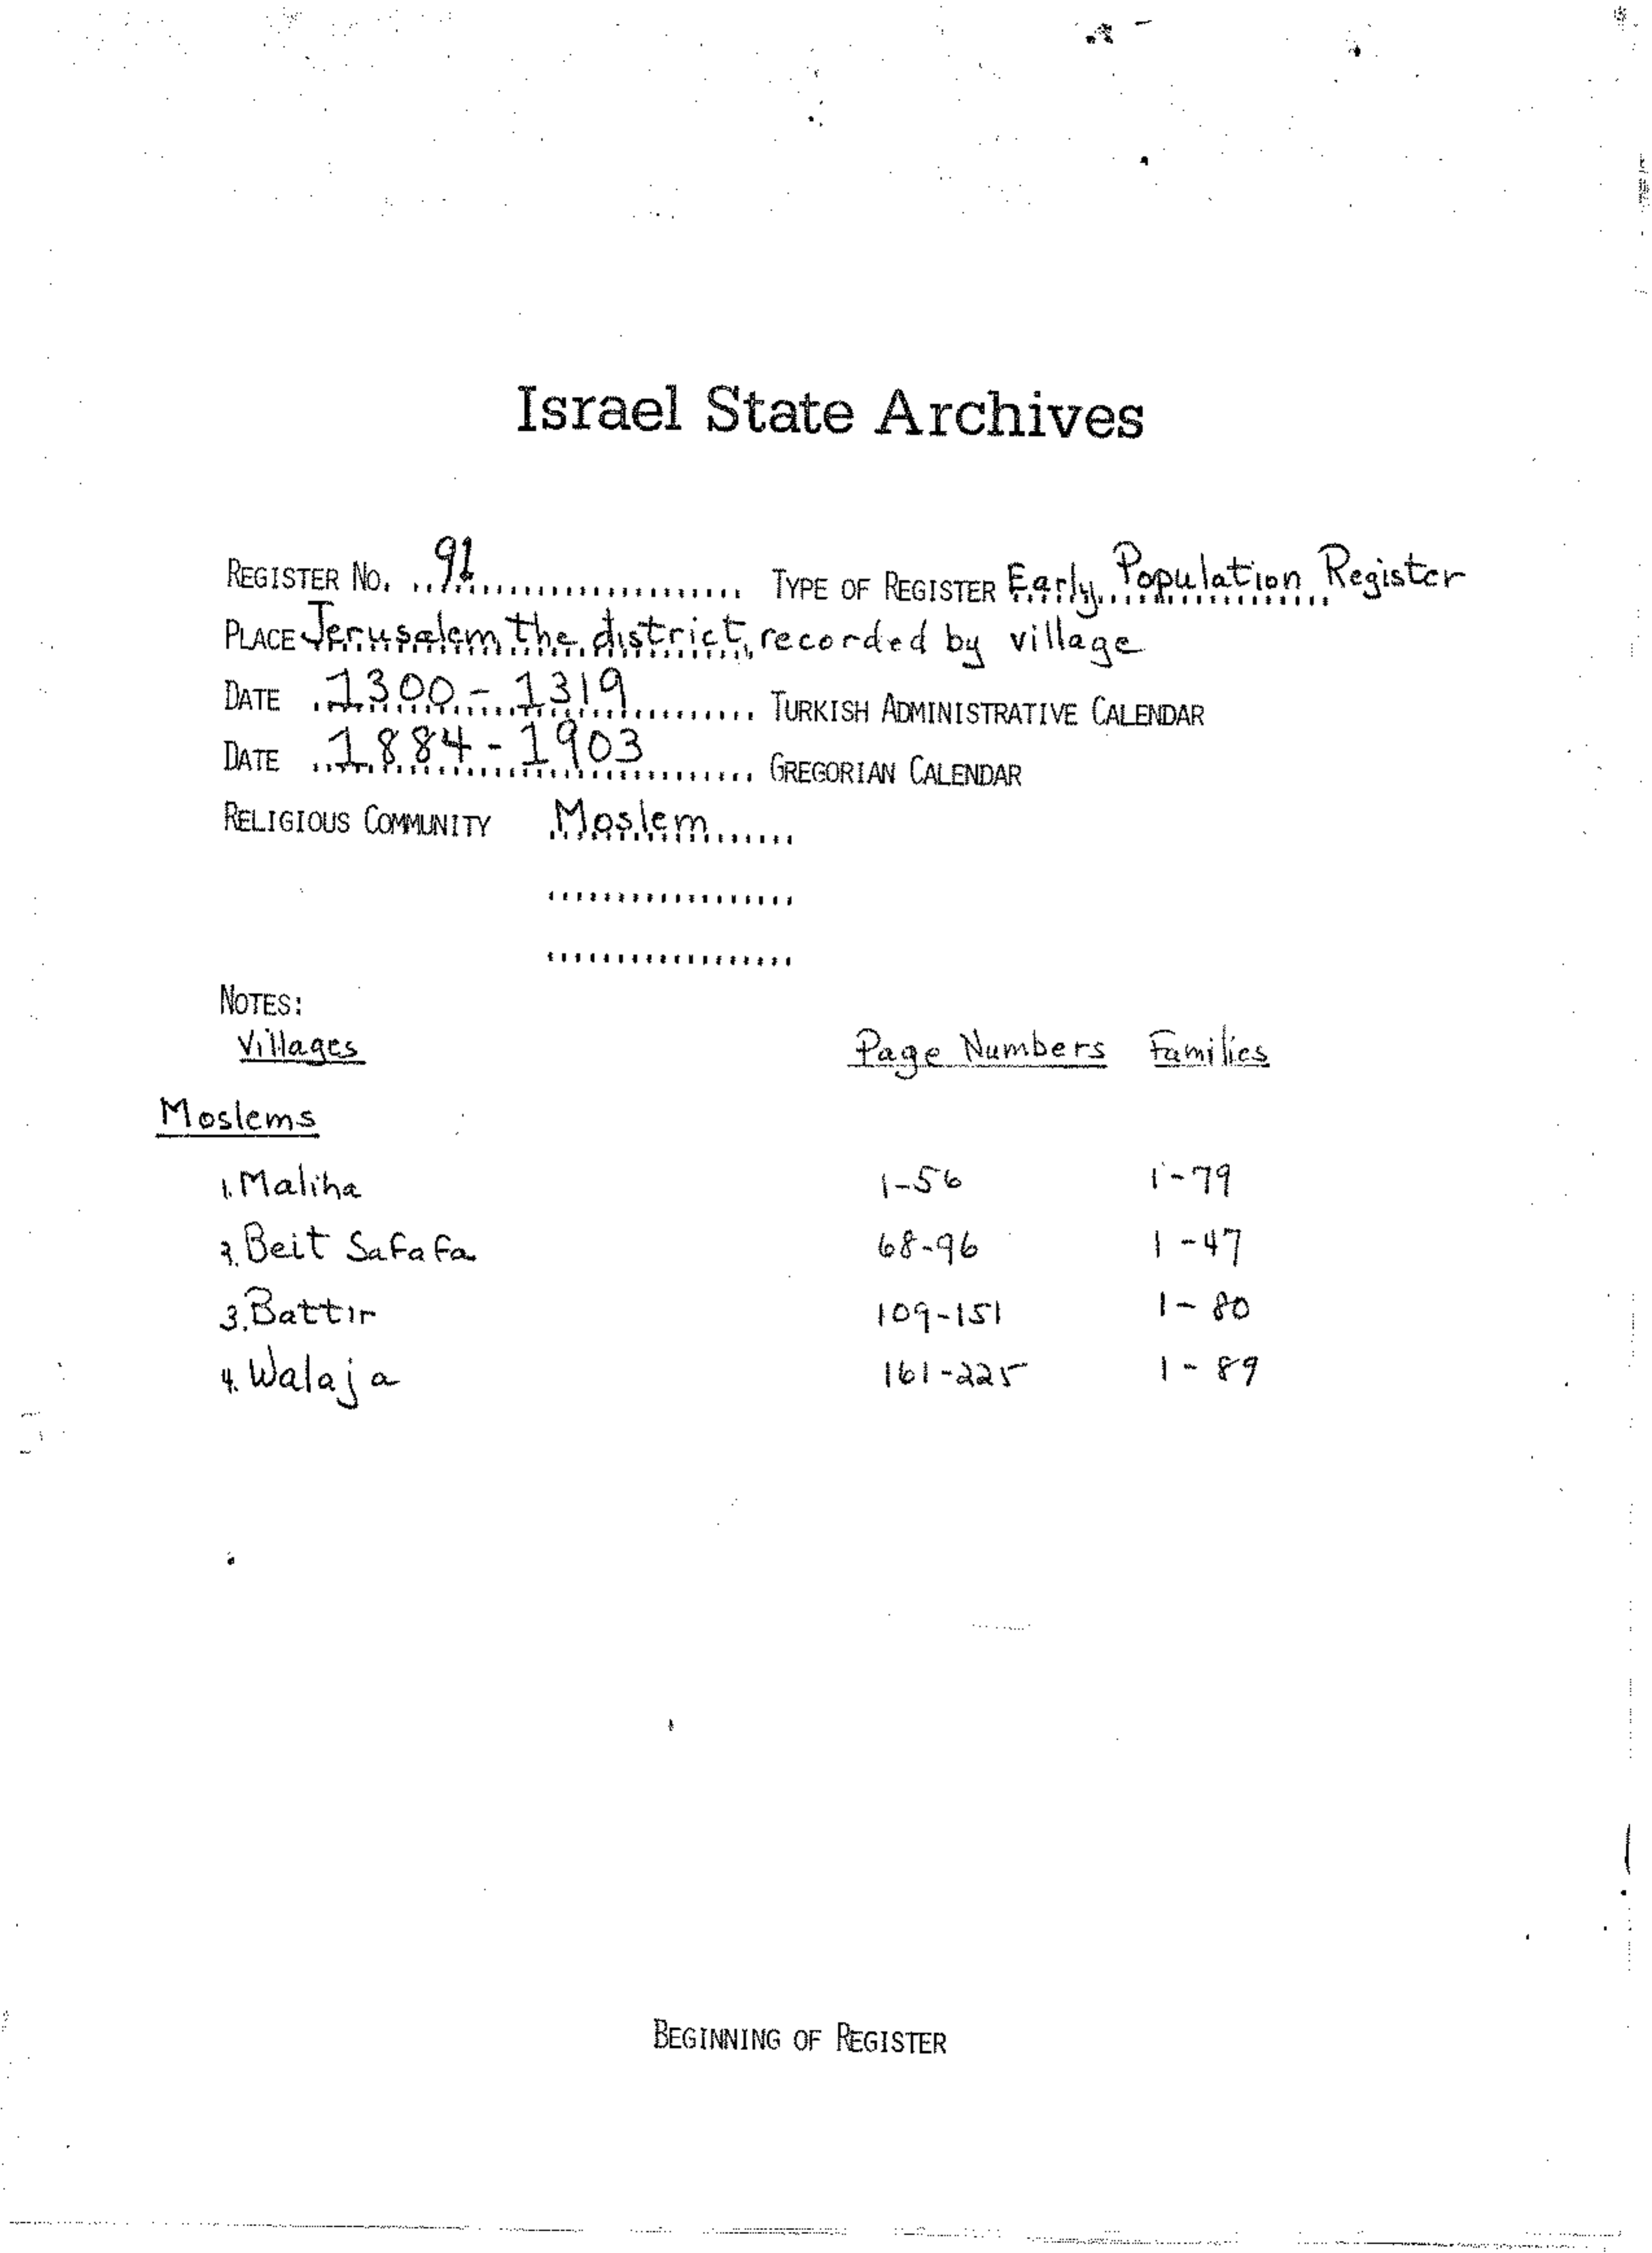 Israel State Archives
REGISTER NO. 91 TYPE OF REGISTER Early Population Register
PLACE Jerusalem, the district, recorded by village
DATE 1300-1319 TURKISH ADMINISTRATIVE CALENDAR
DATE 1884-1903 GREGORIAN CALENDAR
RELIGIOUS COMMUNITY Moslem
NOTES:
Villages Page Numbers Families
Moslems
1. Maliha 1-56 1-79
2. Beit Safafa 68-96 1-47
3. Battir 109-151 1-80
4. Walaja 161-225 1-89
BEGINNING OF REGISTER